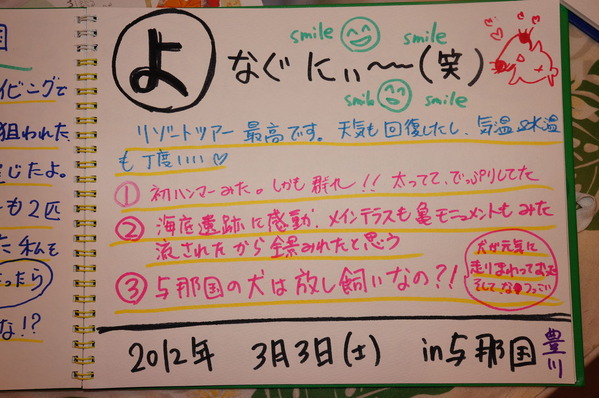 国
イビングで
狙われた
じたよ。
も2匹
た 私も
ったら
な!?
smile smile
よ なぐにぃ〜(笑)
smile smile
リゾートツアー 最高です。天気も回復したし、気温も水温
も丁度いいい♡
① 初ハンマーみた。しかも群れ!! 太ってて、でっぷりしてた
② 海底遺跡に感動、メインテラスも亀モニュメントもみた
流されたから全景みれたと思う
③ 与那国の犬は放し飼いなの?!
犬が元気に
走りまわってむって
そして な つっこい
2012年 3月3日(土) in与那国 豊川